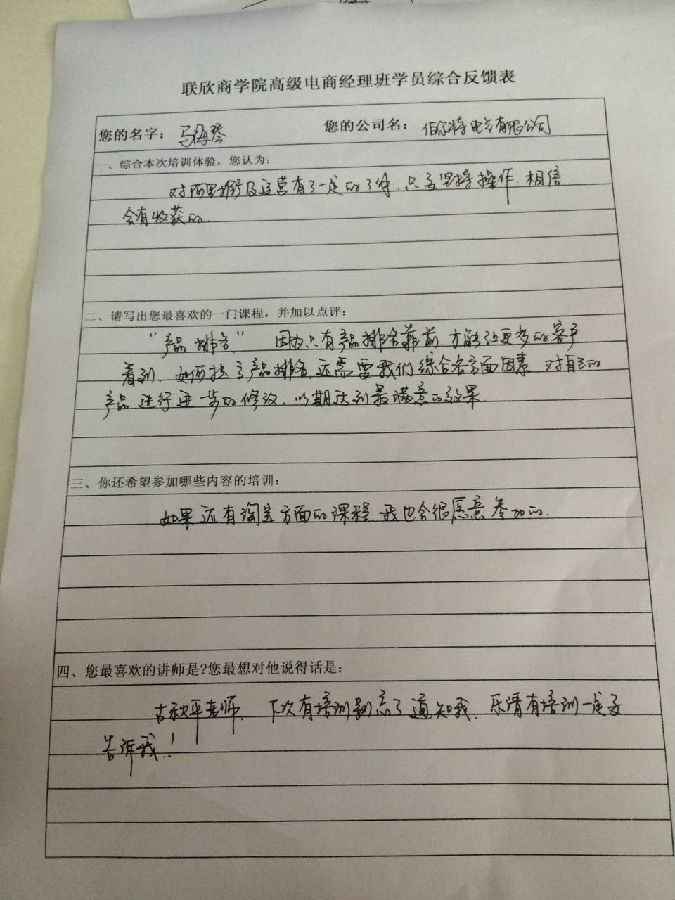 联欣商学院高级电商经理班学员综合反馈表
您的名字：马海琴 您的公司名：伯尔特电气有限公司
一、综合本次培训体验，您认为：
对阿里推广及运营有了一定的了解，只要坚持操作，相信
会有收获的。
二、请写出您最喜欢的一门课程，并加以点评：
“产品排名” 因为只有产品排名靠前，才能让更多的客户
看到，如何提了产品排名，还需要我们综合各方面因素，对自己的
产品进行进一步的修改，以期达到最满意的效果
三、你还希望参加哪些内容的培训：
如果还有淘宝方面的课程，我也会很愿意参加的.
四、您最喜欢的讲师是?您最想对他说得话是：
古永平老师，下次有培训别忘了通知我，乐清有培训一定要
告诉我！